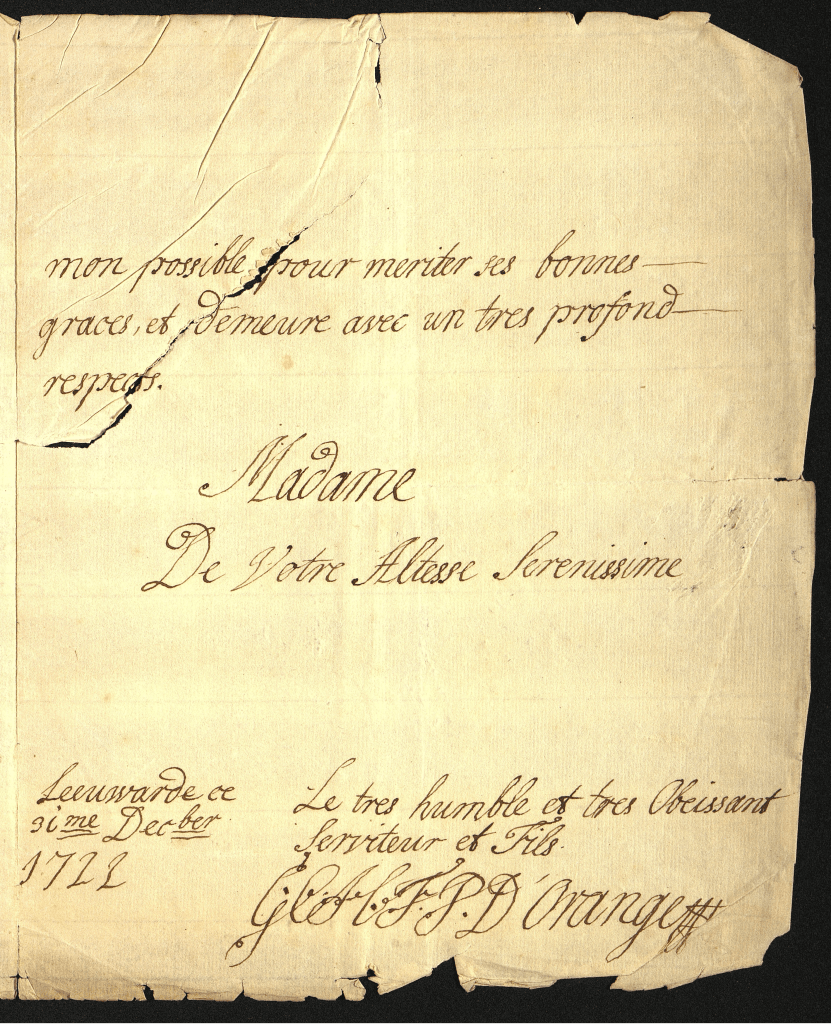 mon possible pour meriter ses bonnes
graces, et Demeure avec un tres profond
respects.
Madame
De Votre Altesse Serenissime
Leeuwarde ce
31me Decber
1722
Le tres humble et tres Obeissant
Serviteur et Fils.
G C H C F. P. D'Orange